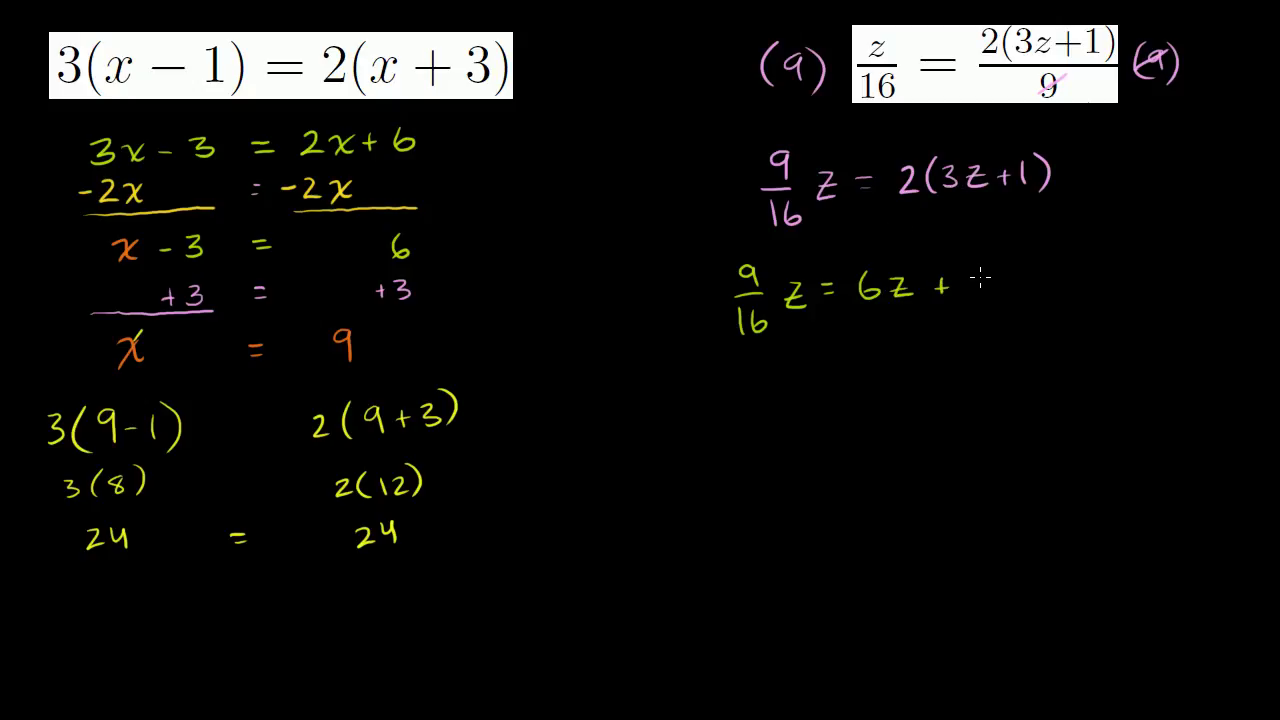 3(x − 1) = 2(x + 3)
3x - 3 = 2x + 6
-2x = -2x
x - 3 = 6
+3 = +3
x = 9
3(9-1) 2(9+3)
3(8) 2(12)
24 = 24
(9) z/16 = 2(3z+1)/9 (9)
9/16 z = 2(3z+1)
9/16 z = 6z +